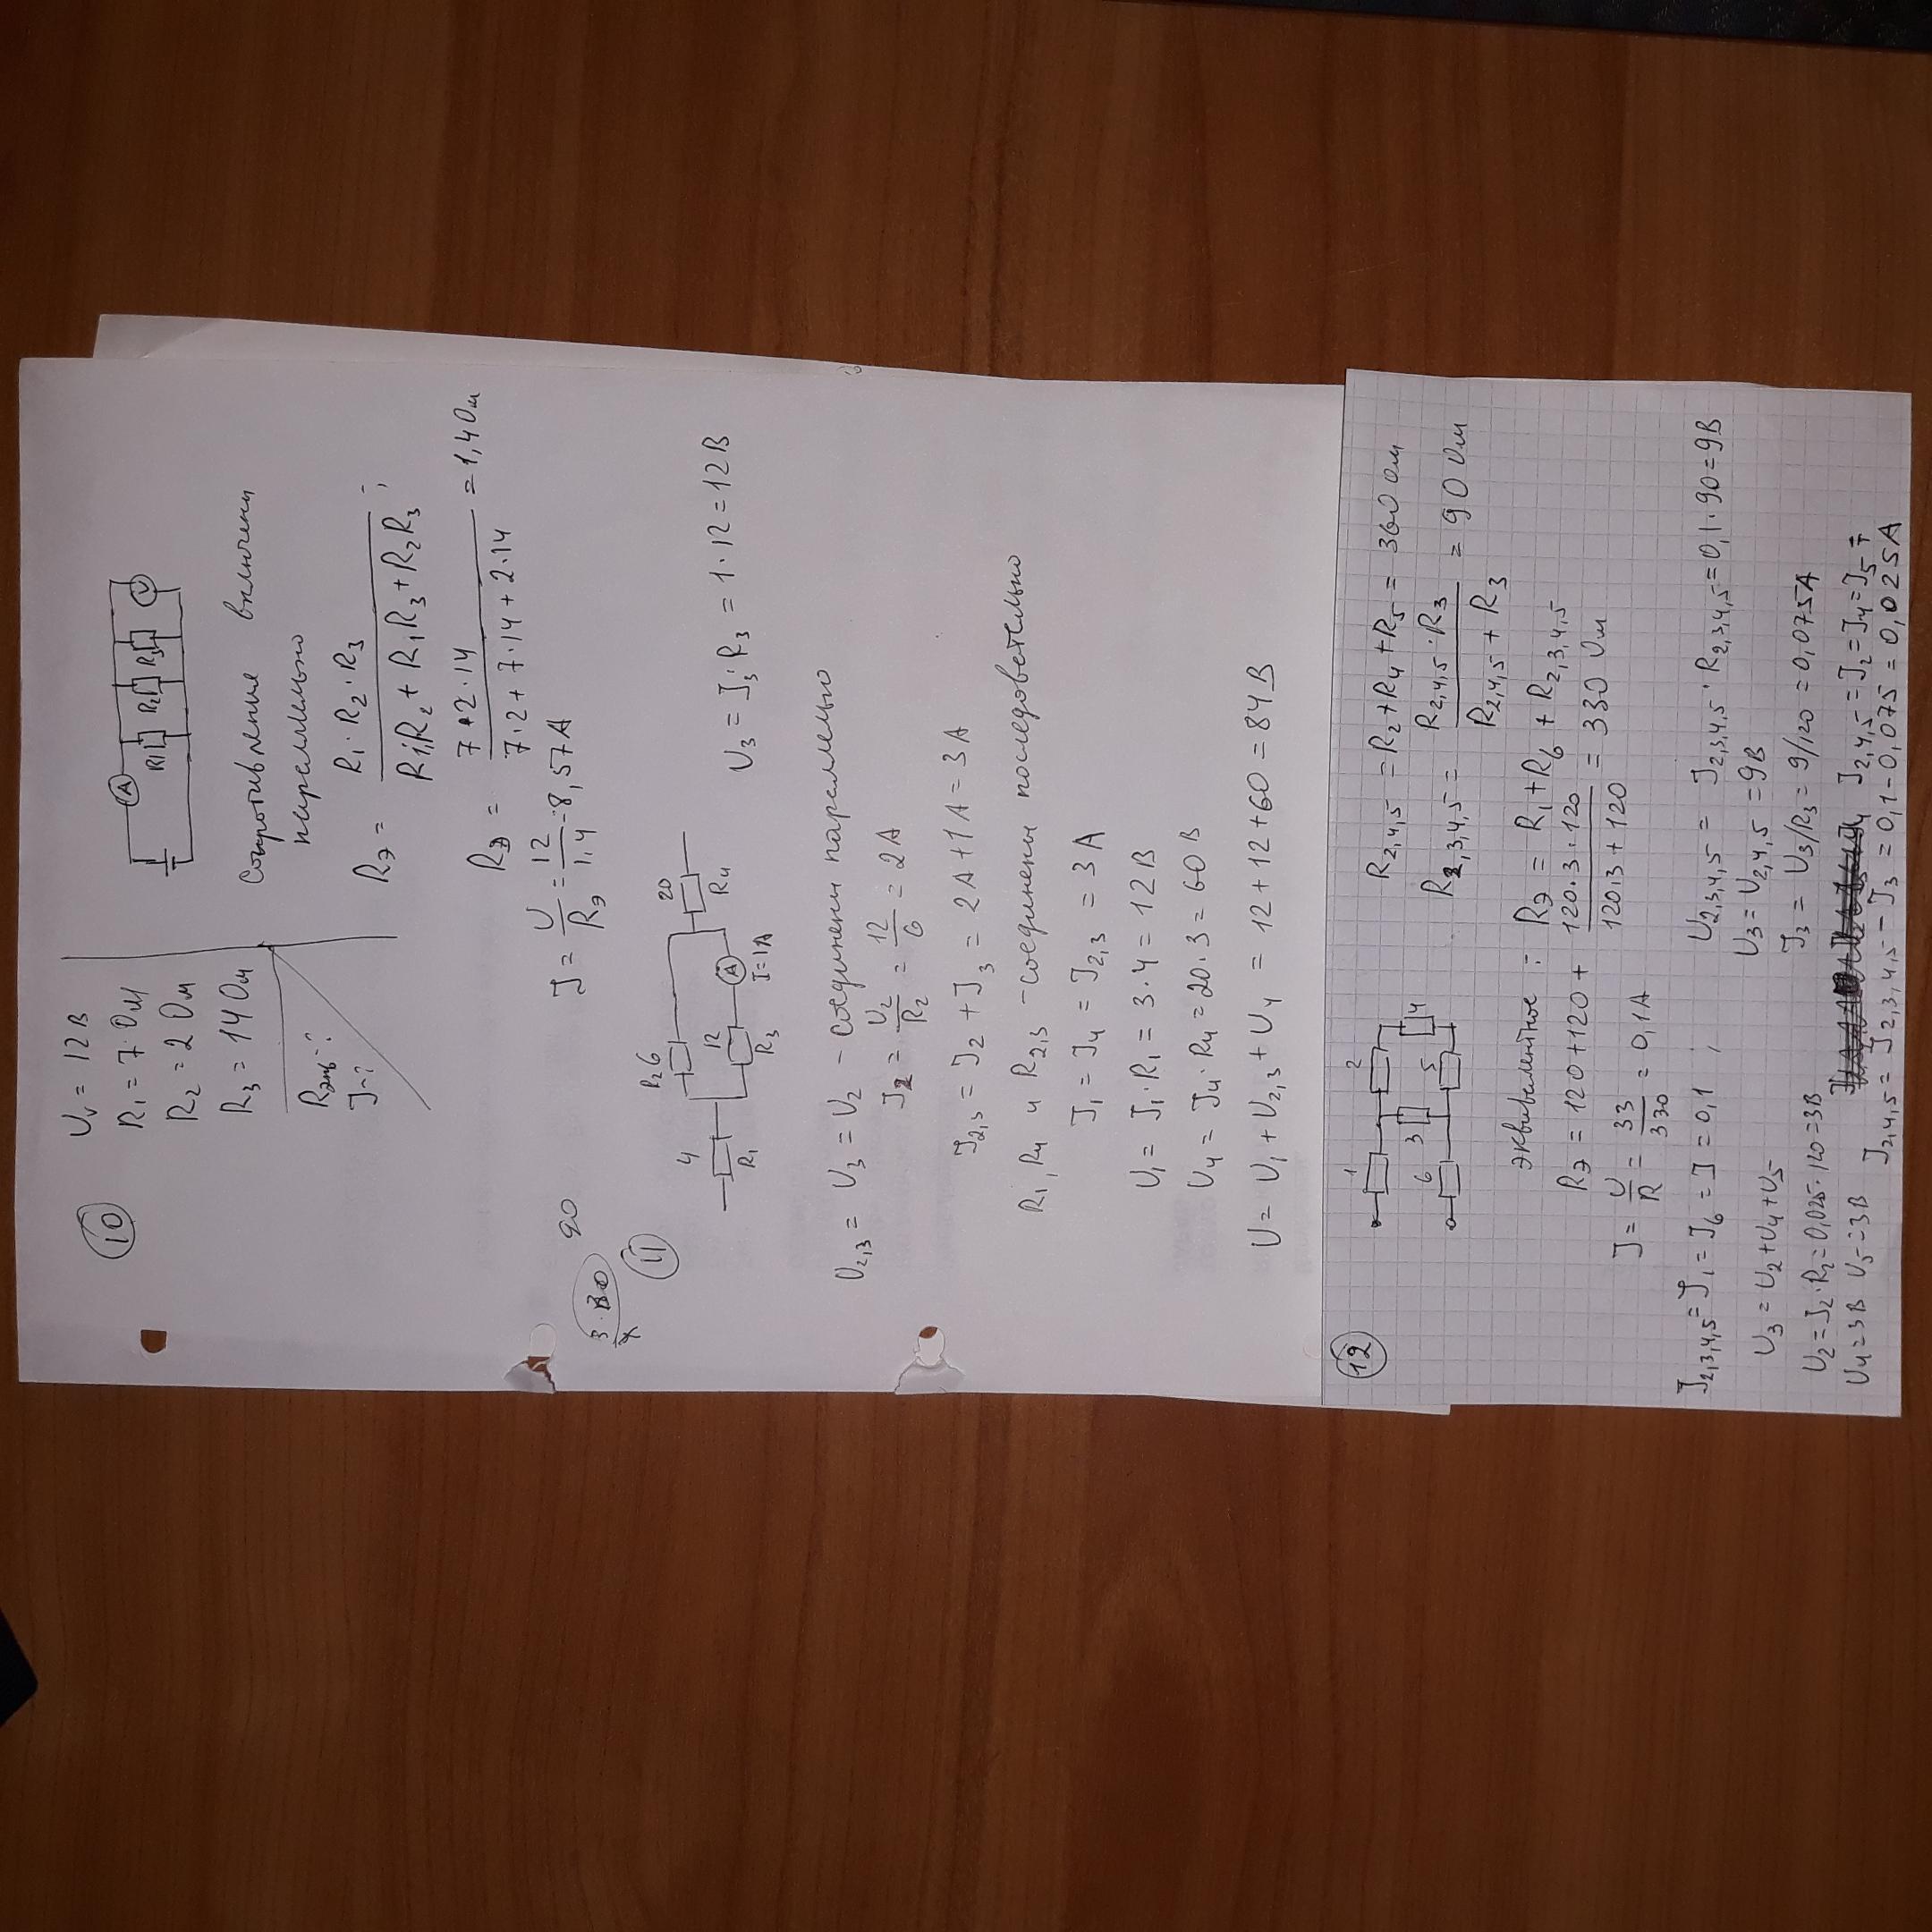 10
U_v = 12 В
R₁ = 7 Ом
R₂ = 2 Ом
R₃ = 14 Ом
Rэкв-?
J-?
A
R1 R2 R3 V
Сопротивление включены
параллельно
Rэ = R₁·R₂·R₃ / R₁R₂ + R₁R₃ + R₂R₃ ;
Rэ = 7·2·14 / 7·2 + 7·14 + 2·14 = 1,4 Ом
J = U / Rэ = 12 / 1,4 = 8,57 А
90
11
4 R₁
R₂ 6
12 R₃
A I=1A
20 R₄
U₃ = J₃·R₃ = 1·12 = 12 В
U₂,₃ = U₃ = U₂ - соединены параллельно
J₂ = U₂ / R₂ = 12 / 6 = 2 А
J₂,₃ = J₂ + J₃ = 2А + 1А = 3 А
R₁, R₄ и R₂,₃ - соединены последоветельно
J₁ = J₄ = J₂,₃ = 3 А
U₁ = J₁·R₁ = 3·4 = 12 В
U₄ = J₄·R₄ = 20·3 = 60 В
U = U₁ + U₂,₃ + U₄ = 12 + 12 + 60 = 84 В
12
1 2
6 3 5 4
R₂,₄,₅ = R₂ + R₄ + R₅ = 360 Ом
R₂,₃,₄,₅ = R₂,₄,₅·R₃ / R₂,₄,₅ + R₃ = 90 Ом
эквивалентное : Rэ = R₁ + R₆ + R₂,₃,₄,₅
Rэ = 120 + 120 + 120·3·120 / 120·3 + 120 = 330 Ом
J = U / R = 33 / 330 = 0,1 А
J₂,₃,₄,₅ = J₁ = J₆ = J = 0,1 ; U₂,₃,₄,₅ = J₂,₃,₄,₅·R₂,₃,₄,₅ = 0,1·90 = 9В
U₃ = U₂,₄,₅ = 9В
U₃ = U₂ + U₄ + U₅
J₃ = U₃/R₃ = 9/120 = 0,075А
U₂ = J₂·R₂ = 0,025·120 = 3В
U₄ = 3 В U₅ = 3 В
J₂,₄,₅ = J₂ = J₄ = J₅
J₂,₄,₅ = J₂,₃,₄,₅ - J₃ = 0,1 - 0,075 = 0,025 А